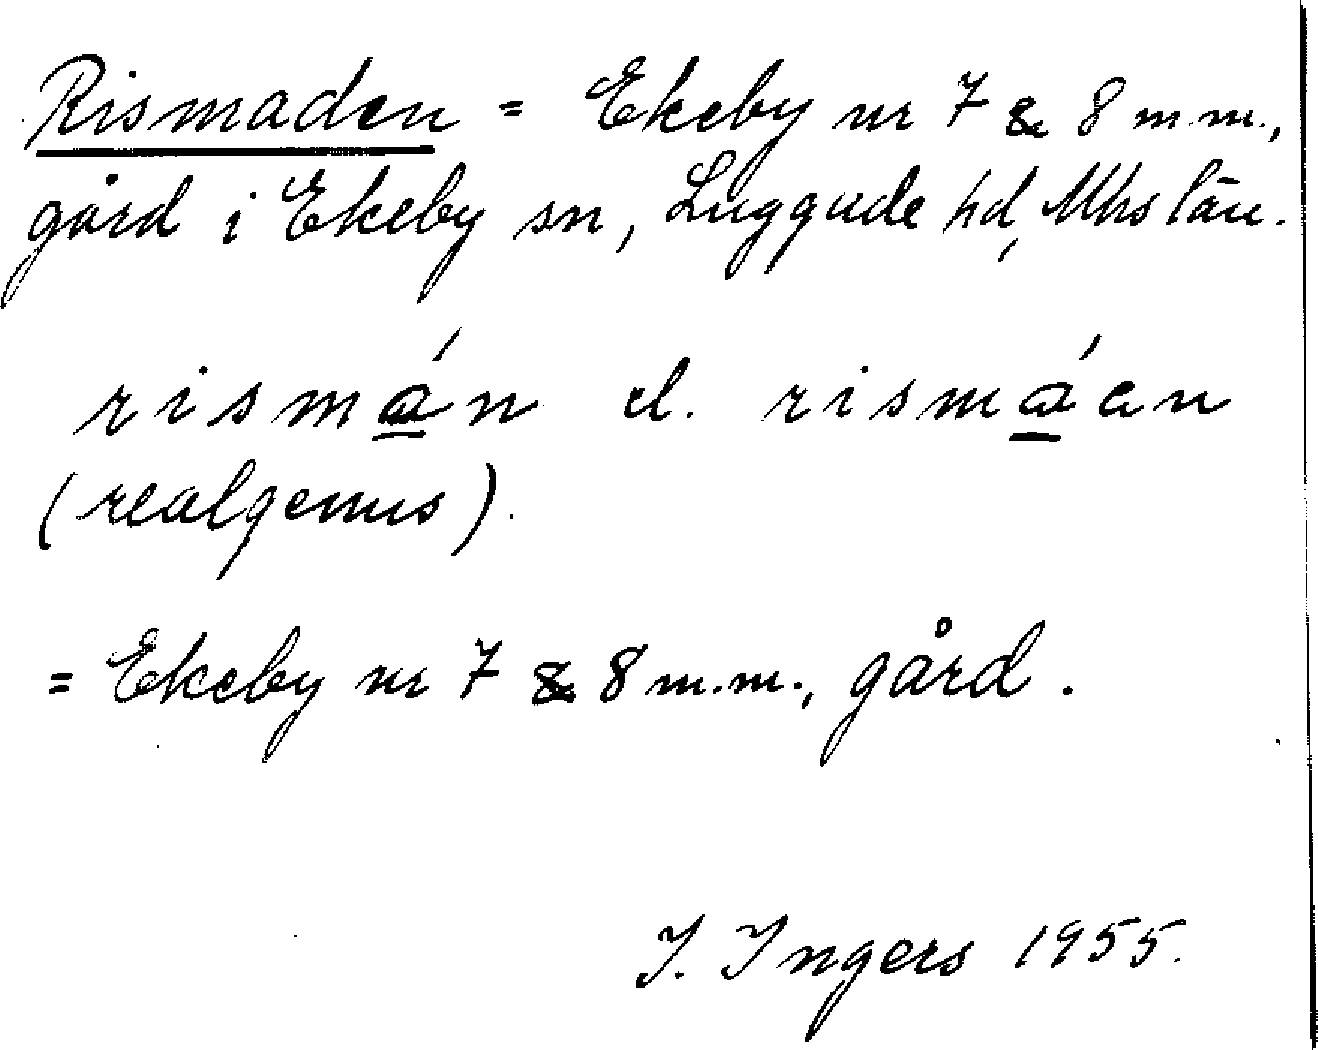 Rismaden = Ekeby nr 7 & 8 m.m.,
gård i Ekeby sn, Luggude hd, Mhs län.
rismán el. rismáen
(realgenus).
= Ekeby nr 7 & 8 m.m., gård.
I. Ingers 1955.